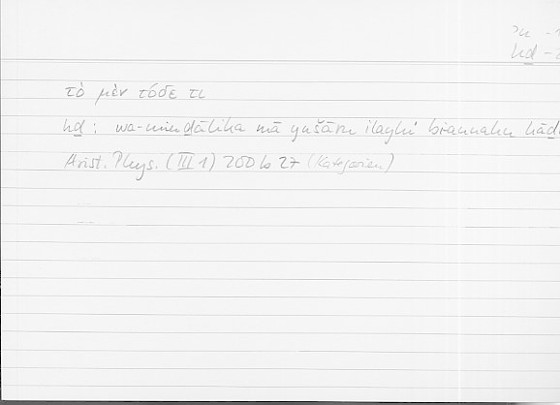 hd –
τὸ μὲν τόδε τι
hd : wa-min ḏālika mā yušāru ilayhi biannahu hāḏ
Arist. Phys. (III 1) 200 b 27 (Kategorien)